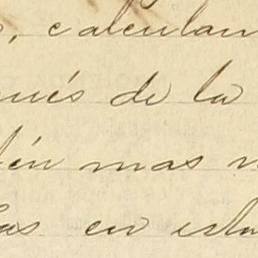 , calculan
ués de la
én mas
as en esta